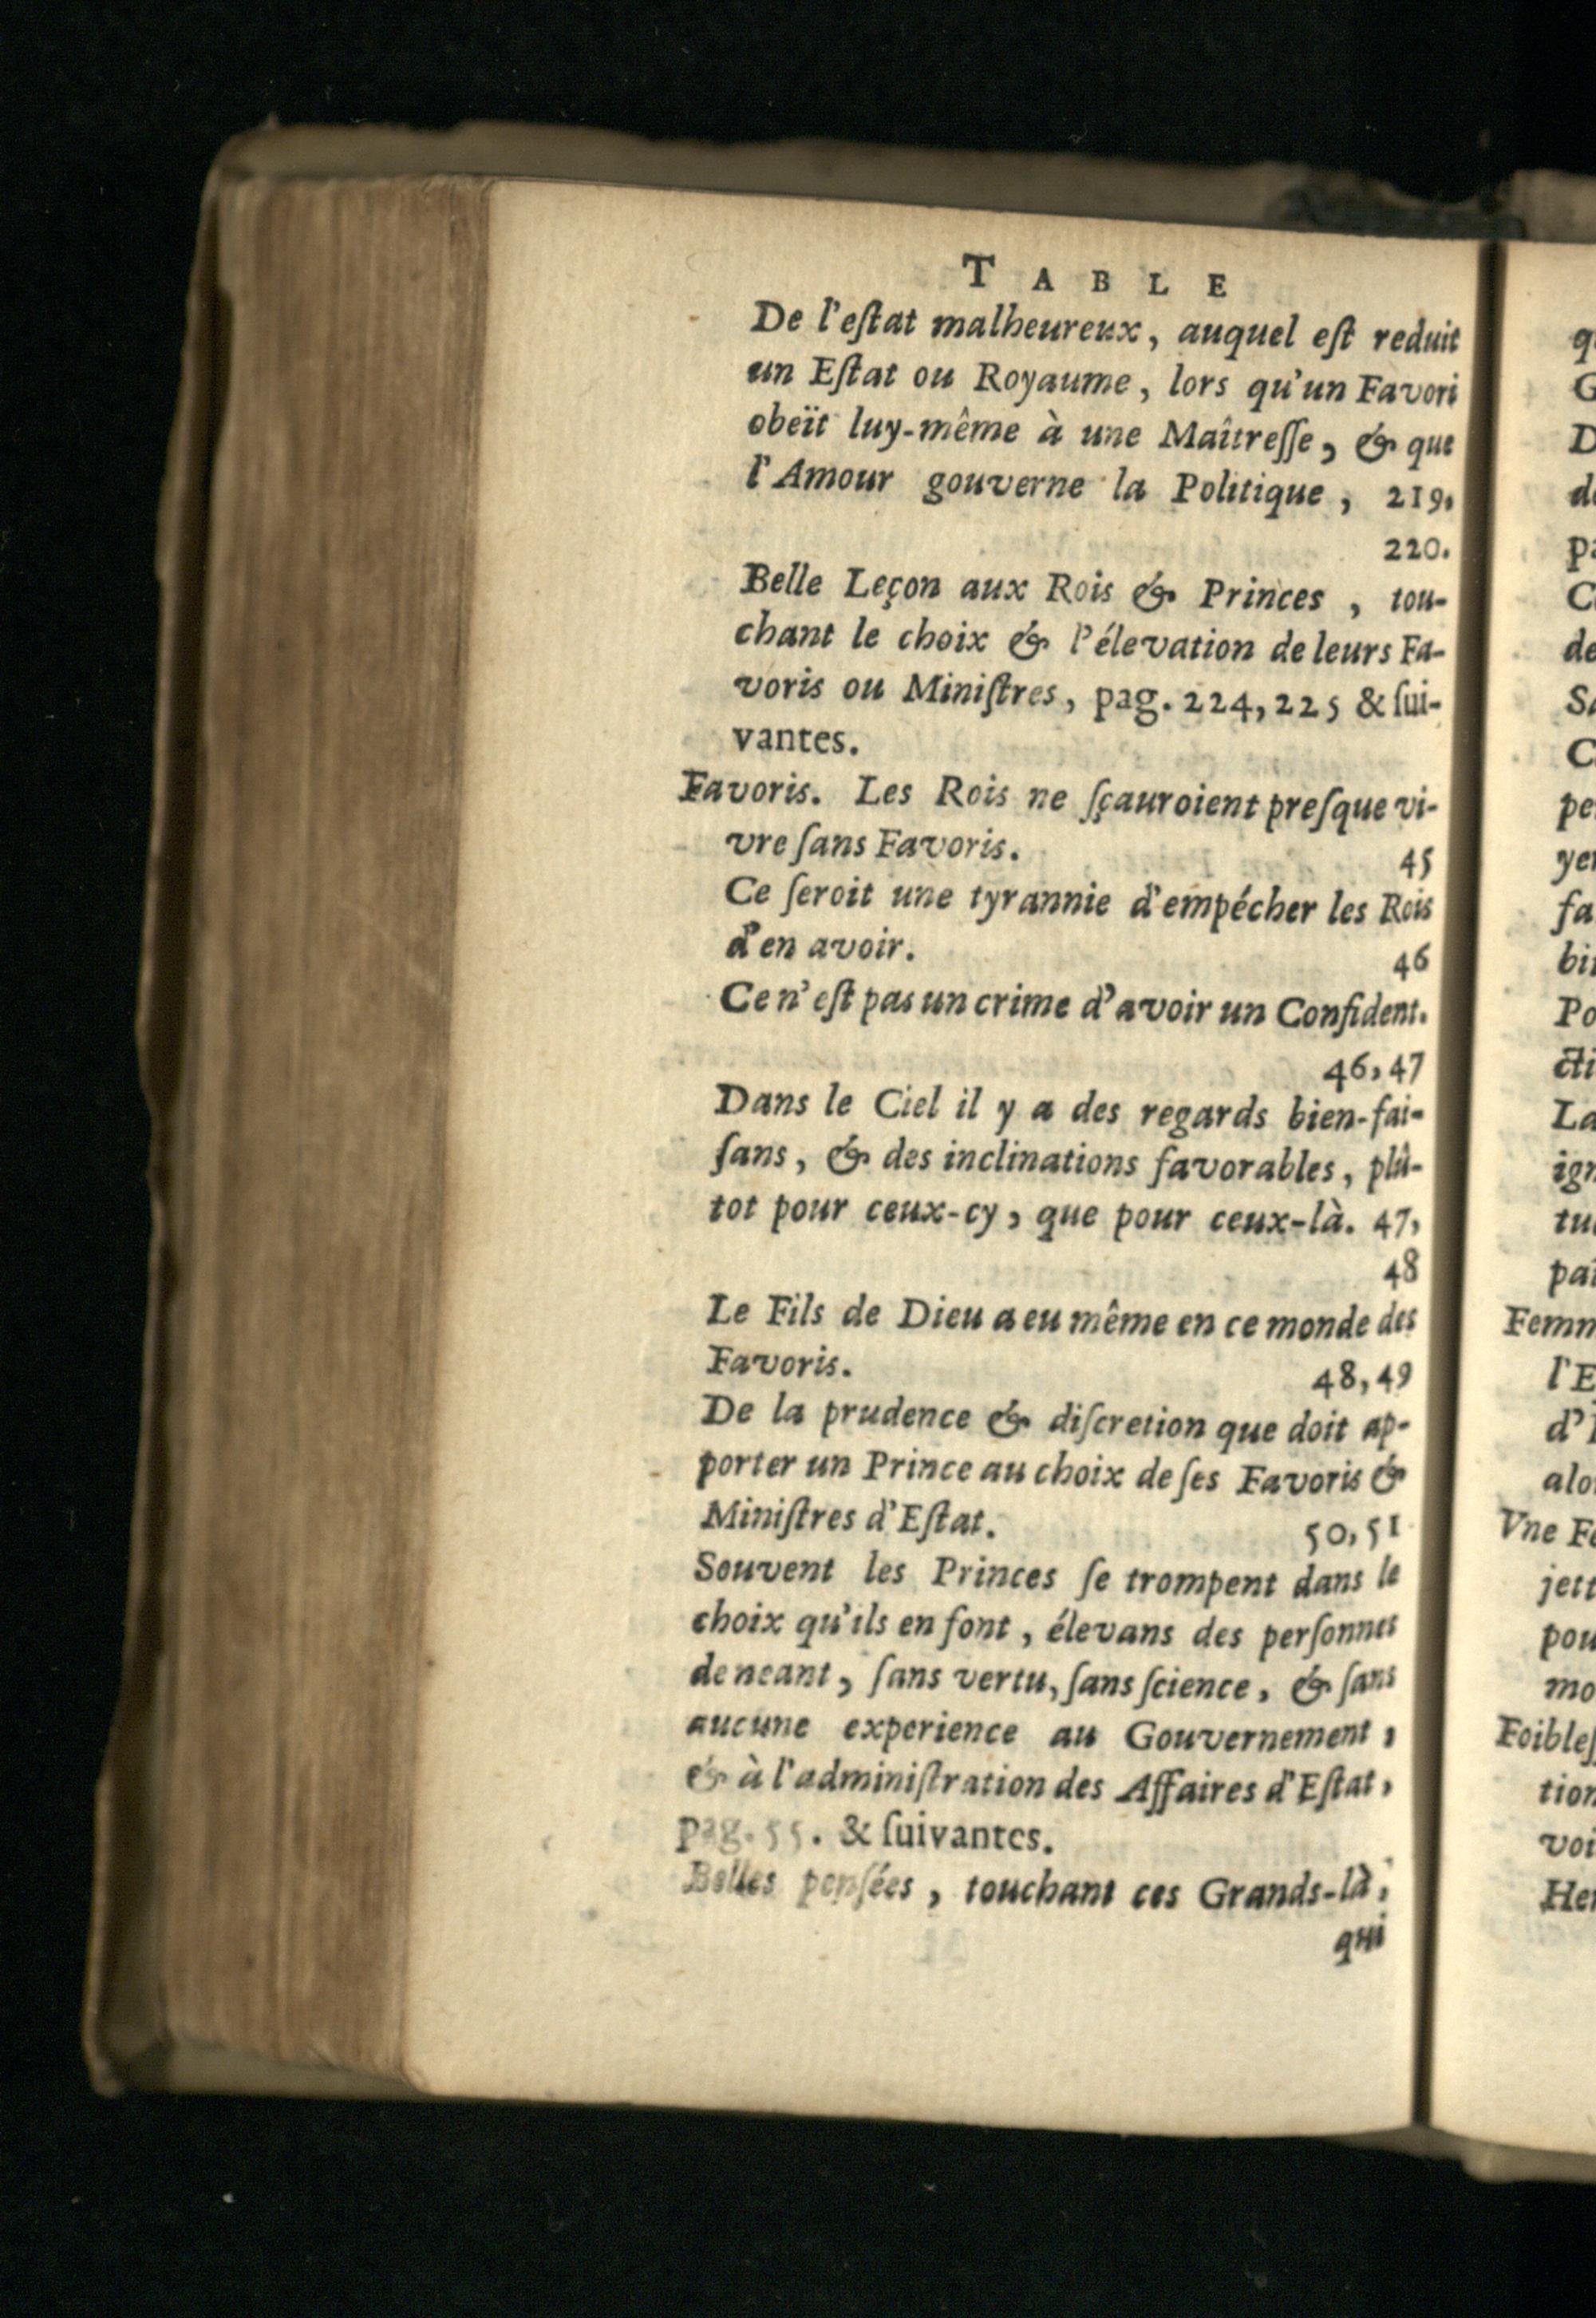 TABLE
De l'eſtat malheureux, auquel eſt reduit
un Eſtat ou Royaume, lors qu'un Favori
obeït luy-même à une Maîtreſſe, & que
l'Amour gouverne la Politique, 219.
220.
Belle Leçon aux Rois & Princes, tou-
chant le choix & l'élevation de leurs Fa-
voris ou Miniſtres, pag. 224, 225 & ſui-
vantes.
Favoris. Les Rois ne ſçauroient preſque vi-
vre ſans Favoris. 45
Ce ſeroit une tyrannie d'empécher les Rois
d'en avoir. 46
Ce n'eſt pas un crime d'avoir un Confident.
46, 47
Dans le Ciel il y a des regards bien-fai-
ſans, & des inclinations favorables, plû-
tot pour ceux-cy, que pour ceux-là. 47,
48
Le Fils de Dieu a eu même en ce monde des
Favoris. 48, 49
De la prudence & diſcretion que doit ap-
porter un Prince au choix de ſes Favoris &
Miniſtres d'Eſtat. 50, 51
Souvent les Princes ſe trompent dans le
choix qu'ils en font, élevans des perſonnes
de neant, ſans vertu, ſans ſcience, & ſans
aucune experience au Gouvernement,
& à l'adminiſtration des Affaires d'Eſtat,
pag. 55. & ſuivantes.
Belles penſées, touchant ces Grands-là,
qui